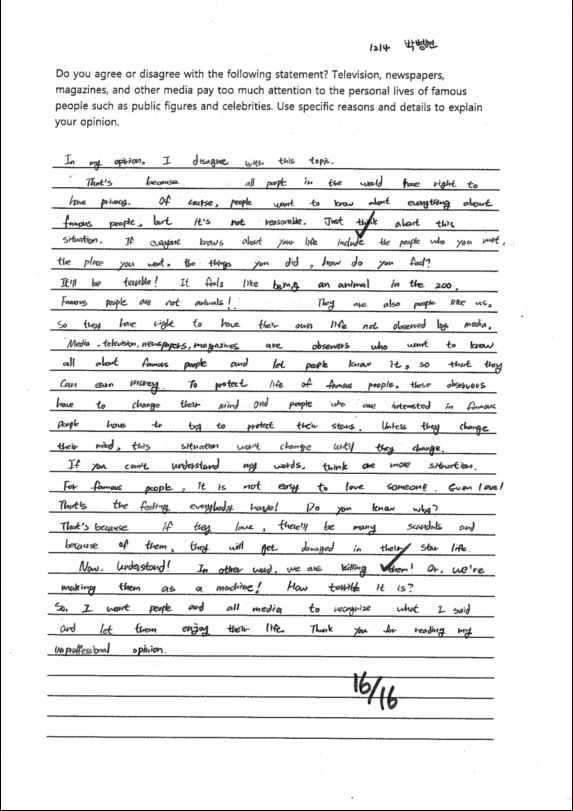 1214 박병현
Do you agree or disagree with the following statement? Television, newspapers,
magazines, and other media pay too much attention to the personal lives of famous
people such as public figures and celebrities. Use specific reasons and details to explain
your opinion.
In my opinion, I disagree with this topic.
That's because all peopl in the world have right to
have privacy. Of course, people want to know about everything about
famous people, but it's not reasonable. Just think about this
situation. If everyone knows about your life include the people who you met,
the place you went, the things you did, how do you feel?
It'll be terrible! It feels like being an animal in the zoo.
Famous people are not animals! They are also people like us.
So they have right to have their own life not observed by media.
Media, television, newspapers, magazines are observers who want to know
all about famous people and let people know it, so that they
can earn money. To protect life of famous people, these observers
have to change their mind and people who are interested in famous
people have to try to protect their stars. Unless they change
their mind, this situation won't change until they change.
If you can't understand my words, think one more situation.
For famous people, it is not easy to love someone. Even love!
That's the feeling everybody have! Do you know why?
That's because if they love, there'll be many scandals and
because of them, they will get damaged in their star life.
Now, understand! In other word, we are killing them! Or, we're
making them as a machine! How terrible it is?
So, I want people and all media to recognize what I said
and let them enjoy their life. Thank you for reading my
unproffessional opinion.
16/16